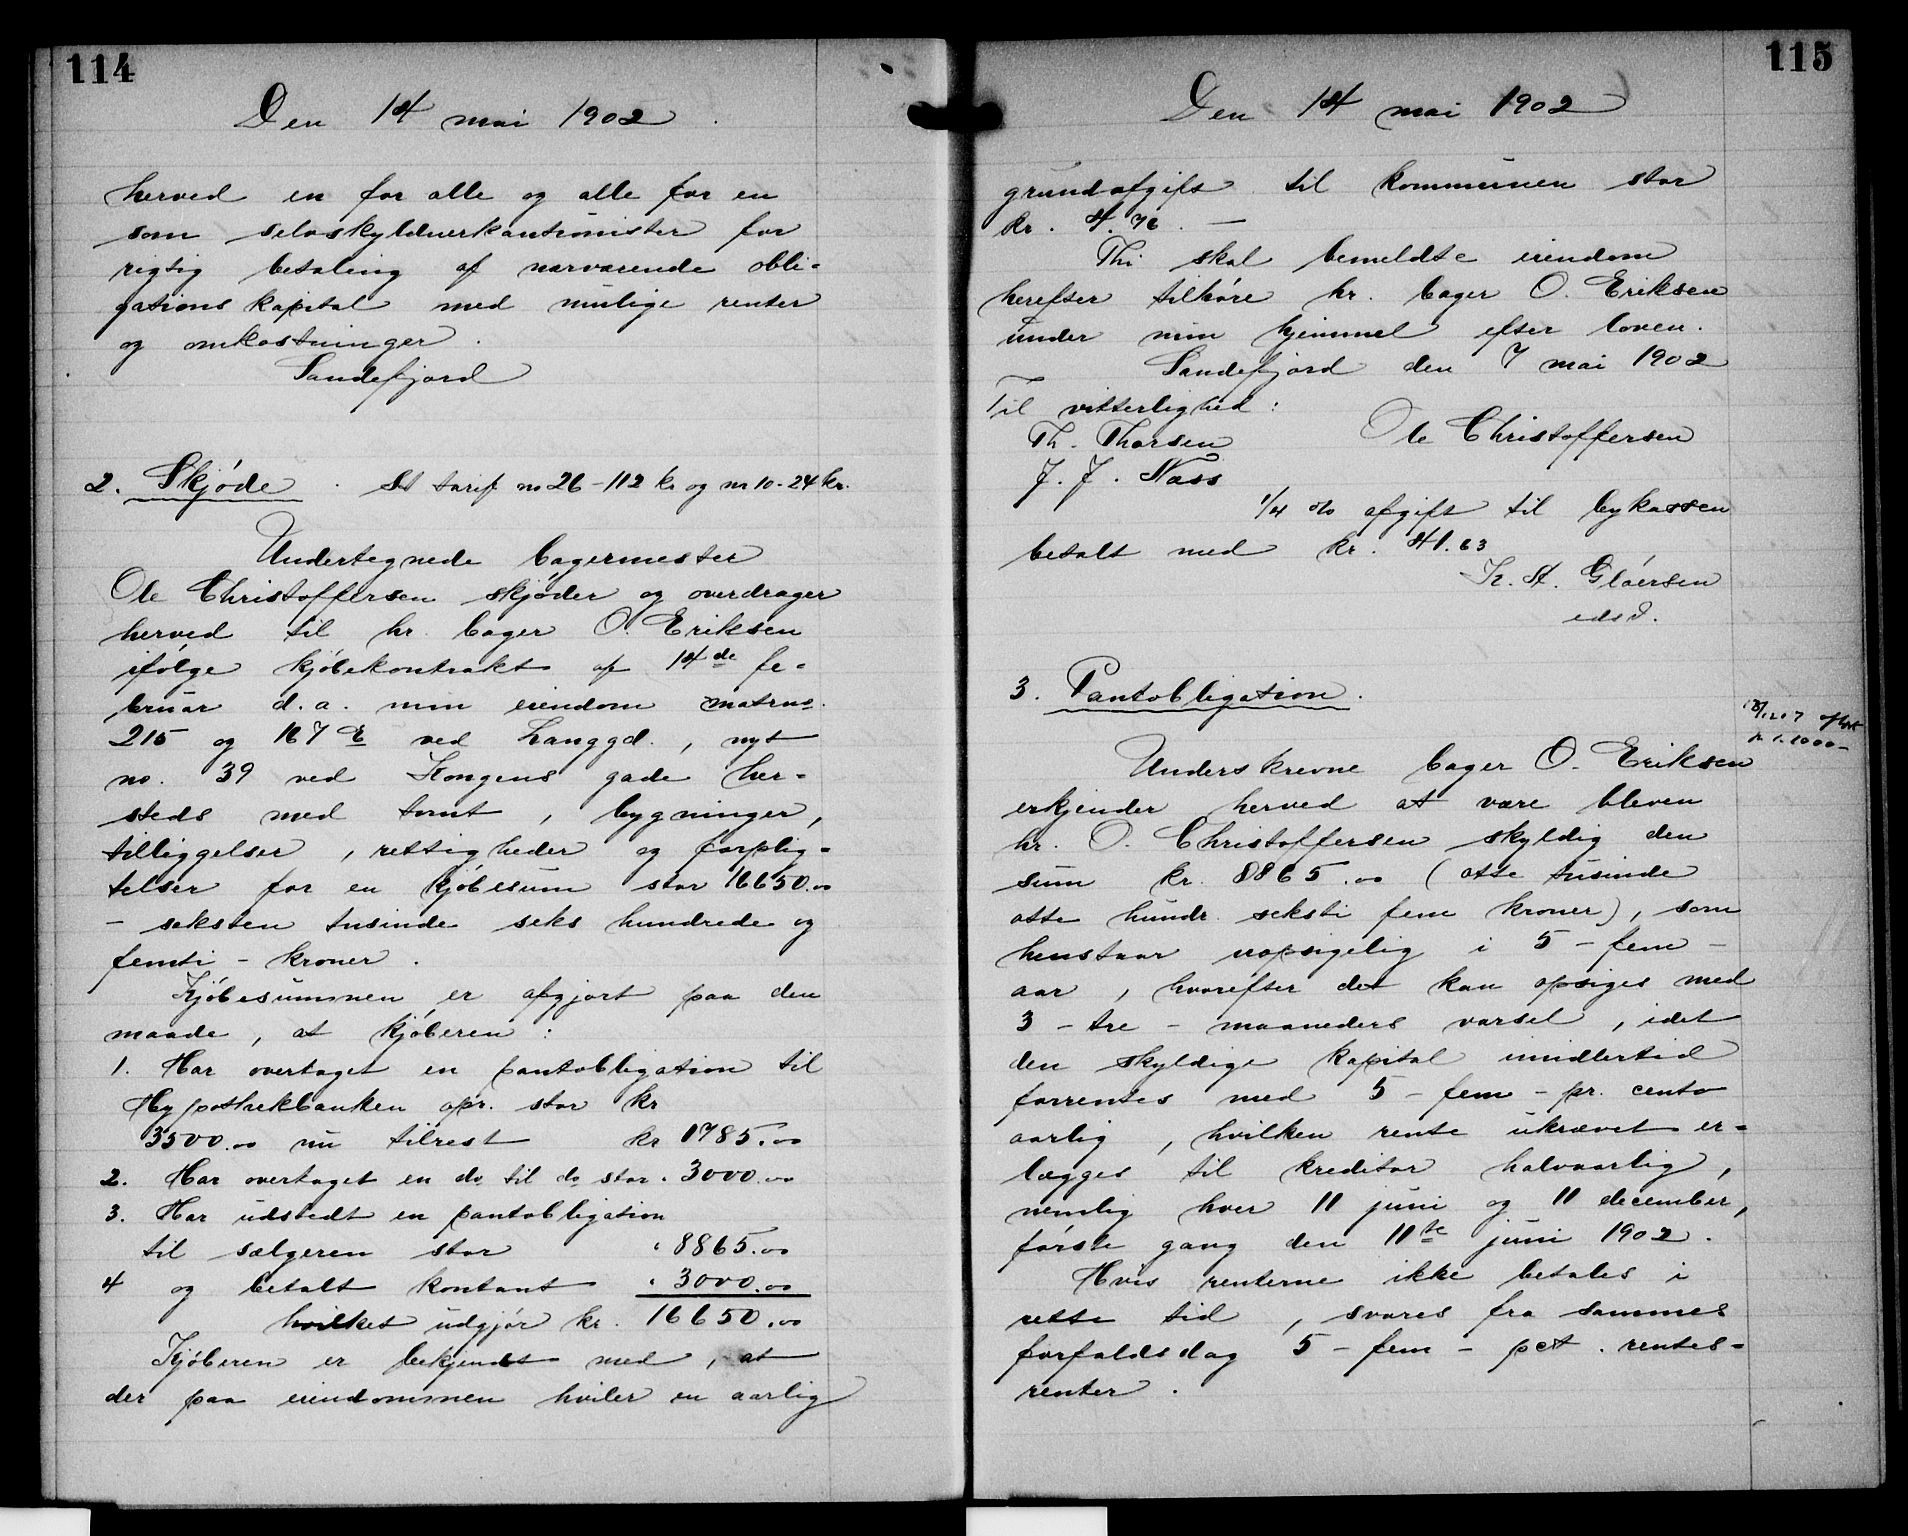 114
Den 14 mai 1902.
herved en for alle og alle for en
som selvskyldnerkautionister for
rigtig betaling af nærværende obli-
gations kapital med mulige renter
og omkostninger.
Sandefjord
2. Skjøde. St tarif no 26 - 112 kr og nr 10 - 24 kr.
Undertegnede bagermester
Ole Christoffersen skjøder og overdrager
herved til hr. bager O. Eriksen
ifølge kjøbekontrakt af 14de fe-
bruar d.a. min eiendom matrno.
215 og 167 E ved Langgd., nyt
no. 39 ved Kongens gade her-
steds med tomt, bygninger,
tilliggelser, rettigheder og forplig-
telser for en kjøbesum stor 16650.00
- seksten tusinde seks hundrede og
femti - kroner.
Kjøbesummen er afgjort paa den
maade, at kjøberen:
1. Har overtaget en pantobligation til
Hypothekbanken opr. stor kr
3500.00 nu tilrest kr 1785.00
2. Har overtaget en do til do stor " 3000.00
3. Har udstedt en pantobligation
til sælgeren stor " 8865.00
4 og betalt kontant " 3000.00
hvilket udgjør kr. 16650.00
Kjøberen er bekjendt med, at
der paa eiendommen hviler en aarlig
115
Den 14 mai 1902
grundafgift til kommunen stor
kr. 4.76. —
Thi skal bemeldte eiendom
herefter tilhøre hr. bager O. Eriksen
under min hjemmel efter loven.
Sandefjord den 7 mai 1902
Til vitterlighed:
Th. Thorsen Ole Christoffersen
J. J. Næss
1/4 % afgift til bykassen
betalt med kr. 41.63
K. St. Gløersen
edsv.
3. Pantobligation.
Underskrevne bager O. Eriksen
erkjender herved at være bleven
hr. O. Christoffersen skyldig den
sum kr. 8865.00 (otte tusinde
otte hundr. seksti fem kroner), som
henstaar uopsigelig i 5 - fem -
aar, hvorefter det kan opsiges med
3 - tre - maaneders varsel, idet
den skyldige kapital imidlertid
forrentes med 5 - fem - pr. cento
aarlig, hvilken rente ukrævet er-
lægges til kreditor halvaarlig,
nemlig hver 11 juni og 11 december,
første gang den 11te juni 1902.
Hvis renterne ikke betales i
rette tid, svares fra sammes
forfaldsdag 5 - fem - pct. rentes-
renter.